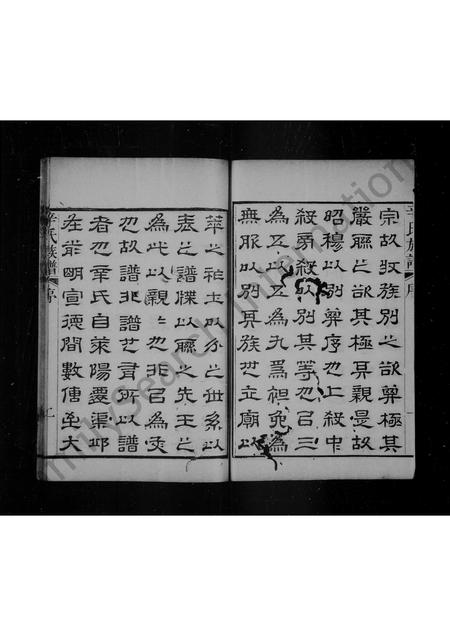 辛氏族譜 序
宗故收族別之欲其極其
嚴聯之欲其極其親是故
昭穆以別其序也上殺中
殺旁殺以別其等也以三
為五以五為九為袒免為
無服以別其族也立廟以
萃之祏土以分之世系以
表之譜牒以聯之先王之
為此以親也非以為文
也故譜非譜也有所以譜
者也辛氏自萊陽遷渠邱
在前明宣德間數傳至大
辛氏族譜 序